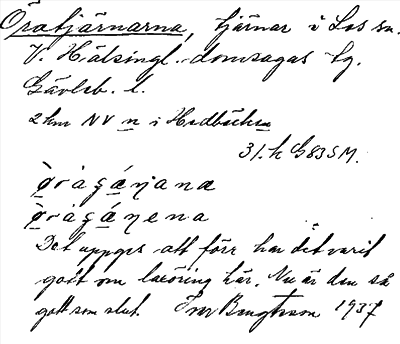 Öratjärnarna, tjärnar i Los sn.
V. Hälsingl. domsagas tg.
Gävleb. l.
2 km NV n i Hedbäcken
31. h G83SM.
ø̀ràgæ̀ŋana
ø̀ràgǽŋena
Det uppges att förr har det varit
gott om laxöring här. Nu är den så
gott som slut. Bengtsson 1937